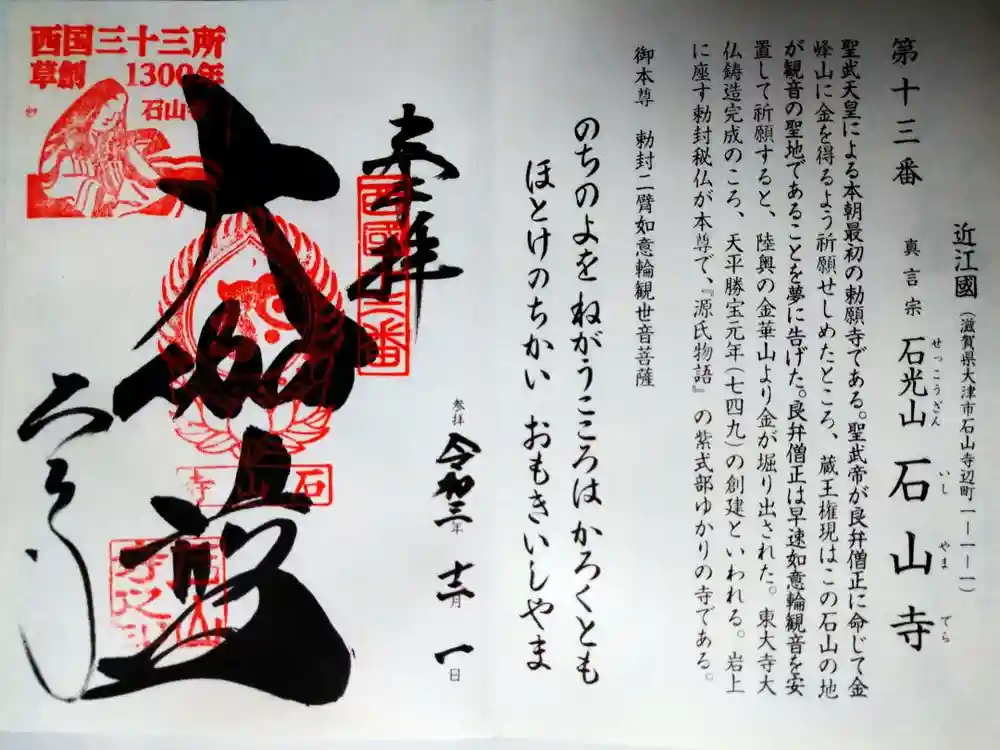 近江國(滋賀県大津市石山寺辺町一ー一ー一)
第十三番 真言宗 石光山 石山寺
せっこうざん いし やま でら
聖武天皇による本朝最初の勅願寺である。聖武帝が良弁僧正に命じて金
峰山に金を得るよう祈願せしめたところ、蔵王権現はこの石山の地
が観音の聖地であることを夢に告げた。良弁僧正は早速如意輪観音を安
置して祈願すると、陸奥の金華山より金が堀り出された。東大寺大
仏鋳造完成のころ、天平勝宝元年(七四九)の創建といわれる。岩上
に座す勅封秘仏が本尊で、『源氏物語』の紫式部ゆかりの寺である。
御本尊 勅封二臂如意輪観世音菩薩
のちのよを ねがうこころは かろくとも
ほとけのちかい おもきいしやま
奉拝
参拝 令和三年 十二月 一日
西國十三番
大伽藍
石山寺
西国三十三所
草創 1300年
石山寺